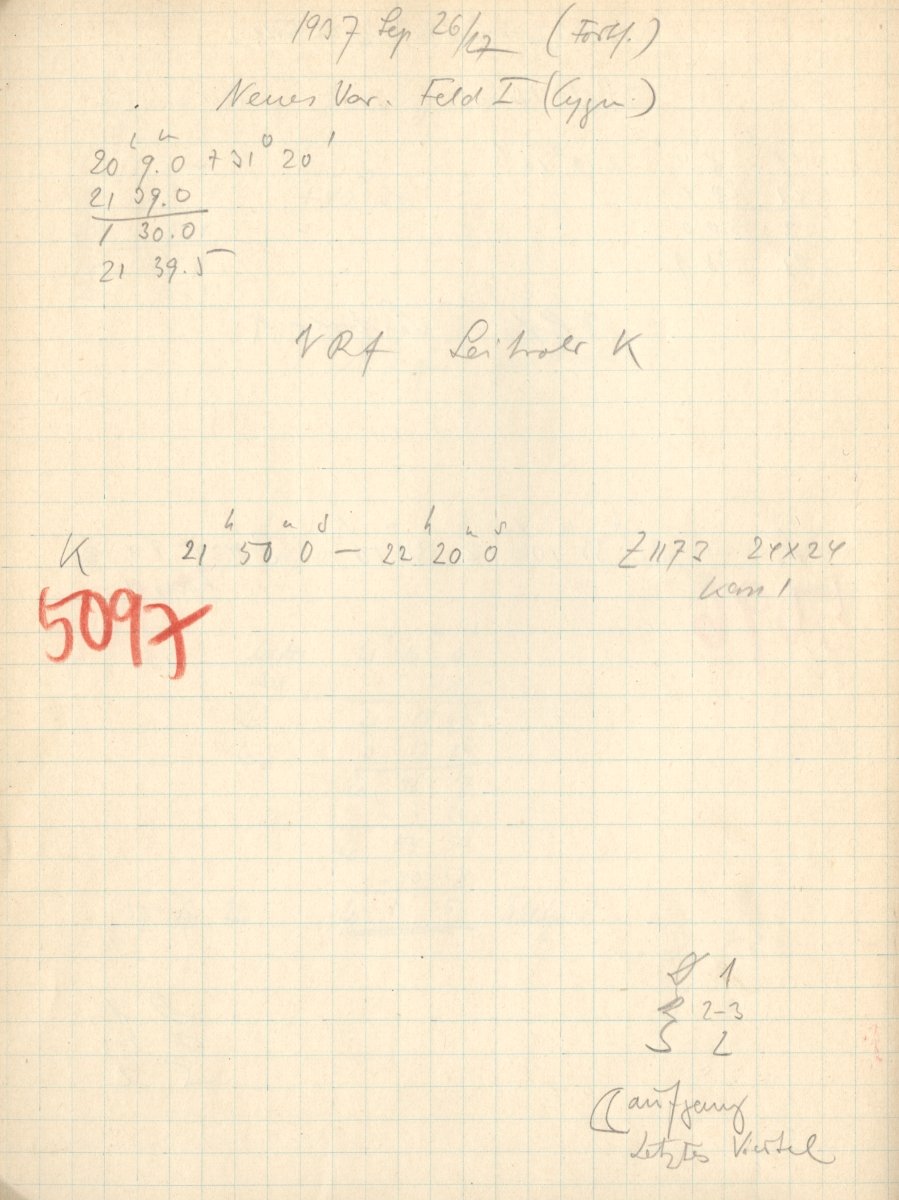 1937 Sep 26/27 (Forts.)
Neues Var. Feld I (Cygn.)
20 h 9.0 m + 31° 20'
21 39.0
1 30.0
21 39.5
Leitrohr K
K 21 h 50 m 0 s — 22 h 20 m 0 s Z1173 24x24
Kass 1
5097
1
2-3
S 2
aufgang
Letztes Viertel